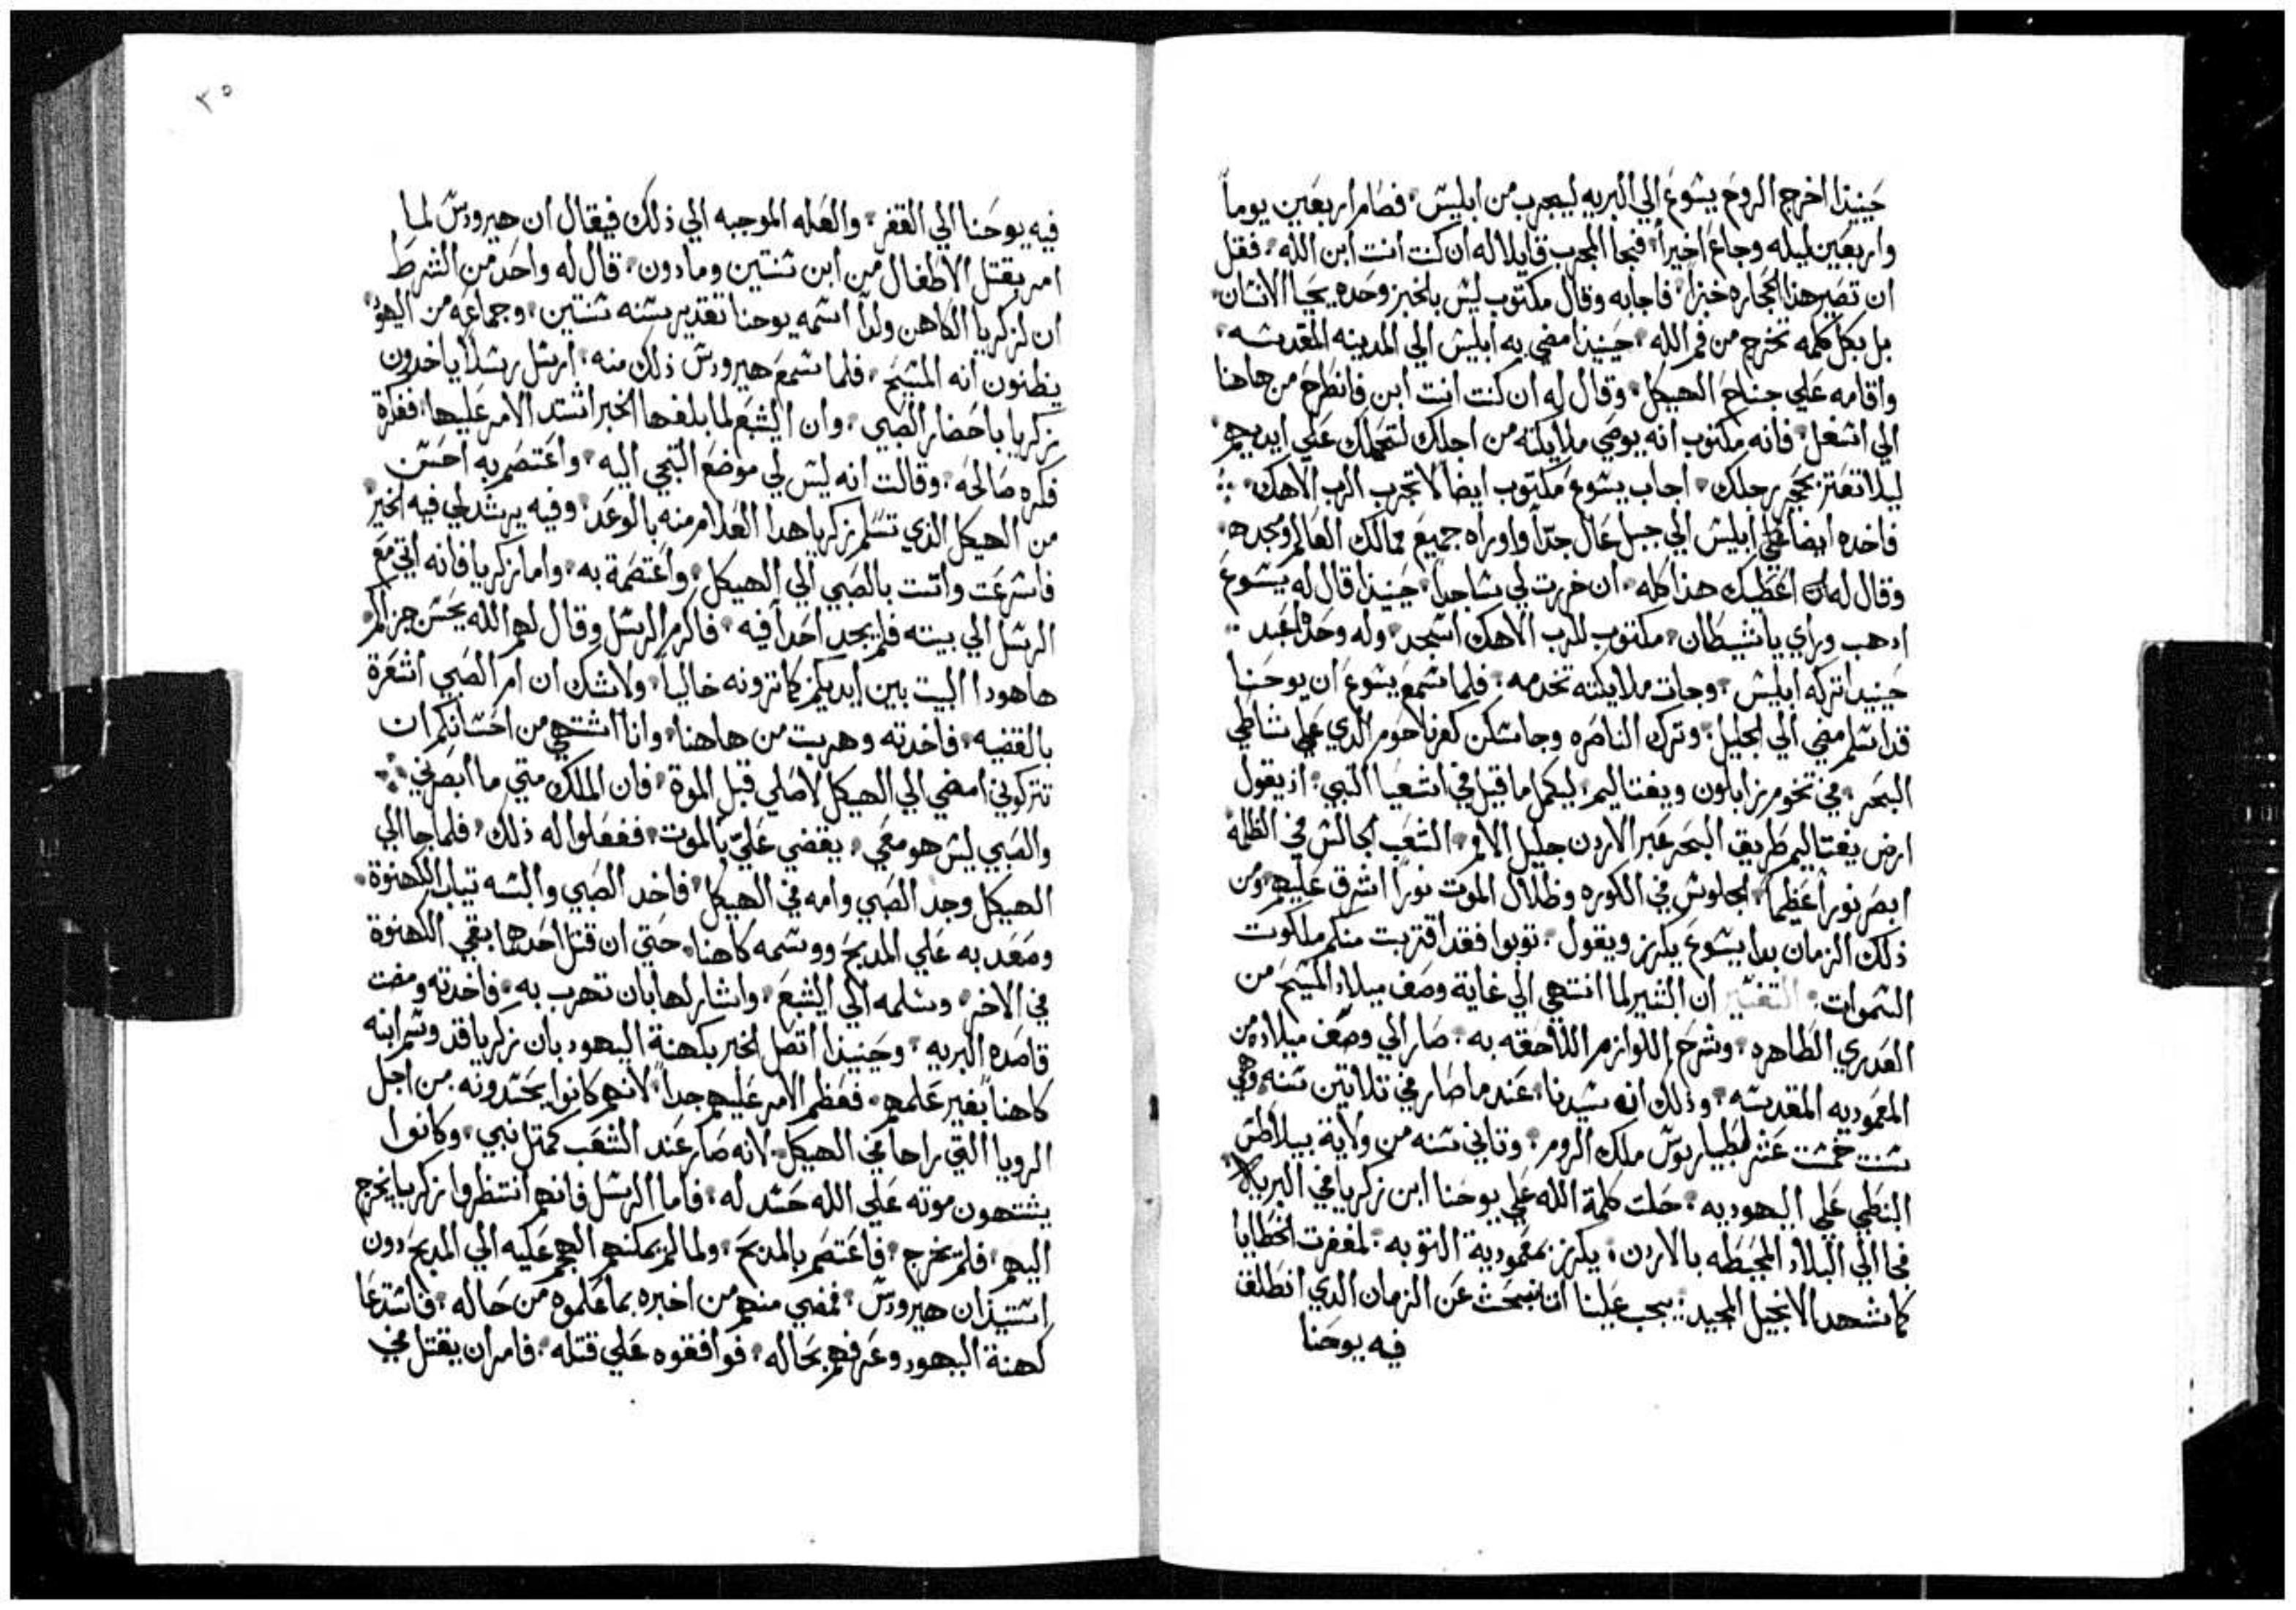 حينيذا اخرج الروح يشوع الي البريه ليجرب من ابليس، فصام اربعين يوماً
واربعين ليله وجاع اخيراً، فنجا المجرب قايلا له ان كنت انت ابن الله، فقل
ان تصير هذا الحجاره خبزاً، فاجابه وقال مكتوب ليس بالخبز وحده يحيا الانسان،
بل بكل كلمه تخرج من فم الله، حينيذا مضي به ابليس الي المدينه المقدسه،
واقامه علي جناح الهيكل، وقال له ان كنت انت ابن فانطرح من هاهنا
الي اسفل، فانه مكتوب انه يوصي ملايكته من اجلك لتحملك علي ايديهم،
ليلا تعتر بحجر رجلك، اجاب يسوع مكتوب ايضاً لا تجرب الرب الاهك
فاخده ايضاً ابليس الي جبل عال جداً واوراه جميع ممالك العالم ومجده،
وقال له اعطيك هذا كله، ان خررت لي ساجداً، حينيذا قال له يسوع
ادهب وراي يا شيطان، مكتوب للرب الاهك اسجد، وله وحده اعبد
حينيدا تركه ابليس، وجات ملايكته تخدمه، فلما سمع يسوع ان يوحنا
قد اسلم مضي الي الجليل، وترك الناصره وجا سكن كفرناحوم الدي علي شاطي
البحر، في تخوم زابلون ويفتاليم، ليكمل ما قيل في اشعيا النبي، اذ يقول
ارض يفتاليم طريق البحر عبر الاردن جليل الامم، الشعب الجالس في الظلمه
ابصر نوراً عظيماً، الجلوس في الكوره وظلال الموت نوراً اشرق عليهم، ومن
ذلك الزمان بدا يسوع يكرز ويقول، توبوا فقد اقتربت منكم ملكوت
السموات، التفسير ان البشير لما انتهي الي غاية وصف ميلاد المسيح من
العدري الطاهره، وشرح اللوازم اللاحقه به، صار الي وصف ميلاده من
المعموديه المقدسه، وذلك انه سيدنا، عند ما صار في تلاتين سنه، وهي
سنت خمست عشر لطيباريوس ملك الروم، وتاني سنه من ولاية بيلاطس
النبطي علي اليهوديه، حلت كلمة الله علي يوحنا ابن زكريا في البريه
فجا الي البلاد المحيطه بالاردن، يكرز بمعمودية التوبه، لمغفرت الخطايا
كما شهد الانجيل المجيد، يجب علينا اننا نبحث عن الزمان الدي انطلق
فيه يوحنا
٣٥
فيه يوحنا الي القفر، والعله الموجبه الي ذلك فيقال ان هيرودس لما
امر بقتل الاطفال من ابن سنتين وما دون، قال له واحد من الشرط
ان لزكريا الكاهن ولداً اسمه يوحنا تقدير سنه سنتين، وجماعه من اليهود
يظنون انه المسيح، فلما سمع هيرودس ذلك منه، ارسل رسلاً ياخدون
زكريا باحضار الصبي، وان اليشبع لما بلغها الخبر اشتد الامر عليها، ففكرة
فكره صالحه، وقالت انه ليس لي موضع التجي اليه، واعتصم به احسن
من الهيكل الذي تسلم زكريا هدا الغلام منه بالوعد، وفيه يرشد لي فيه الخير
فاسرعت واتت بالصبي الي الهيكل، واعتصمة به، واما زكريا فانه اتي مع
الرسل الي بيته فلم يجد احداً فيه، فاكرم الرسل وقال لهم الله يحسن جزاكم
هاهودا البيت بين ايديكم كما ترونه خالياً، ولا شك ان ام الصبي اشعرة
بالقضيه، فاخدته وهربت من هاهنا، وانا اشتهي من احسانكم ان
تتركوني امضي الي الهيكل لاصلي قبل الموة، فان الملك متي ما ابصرني
والصبي ليس هو معي، يقضي علي بالموت، ففعلوا له ذلك، فلما جا الي
الهيكل وجد الصبي وامه في الهيكل، فاخد الصبي والبسه تياب الكهنوة،
وصعد به علي المدبح ووسمه كاهنا، حتي ان قتل احدهما بقي الكهنوة
في الاخر، وسلمه الي اليشبع، واشار لها بان تهرب به، فاخدته ومضت
قاصده البريه، وحينيذا اتصل الخبر بكهنة اليهود بان زكريا قد وسم ابنه
كاهناً بغير علمهم، فعظم الامر عليهم جداً، لانهم كانوا يحسدونه من اجل
الرويا التي راها في الهيكل، لانه صار عند الشعب كمتل نبي، وكانوا
يشتهون موته علي الله حسد له، فاما الرسل فانهم انتظروا زكريا يخرج
اليهم، فلم يخرج، فاعتصم بالمدبح، ولما لم يمكنهم الهجم عليه الي المدبح دون
استيذان هيرودس، فمضي منهم من اخبره بما علموه من حاله، فاستدعا
كهنة اليهود وعرفهم بحاله، فوافقوه علي قتله، فامر ان يقتل في